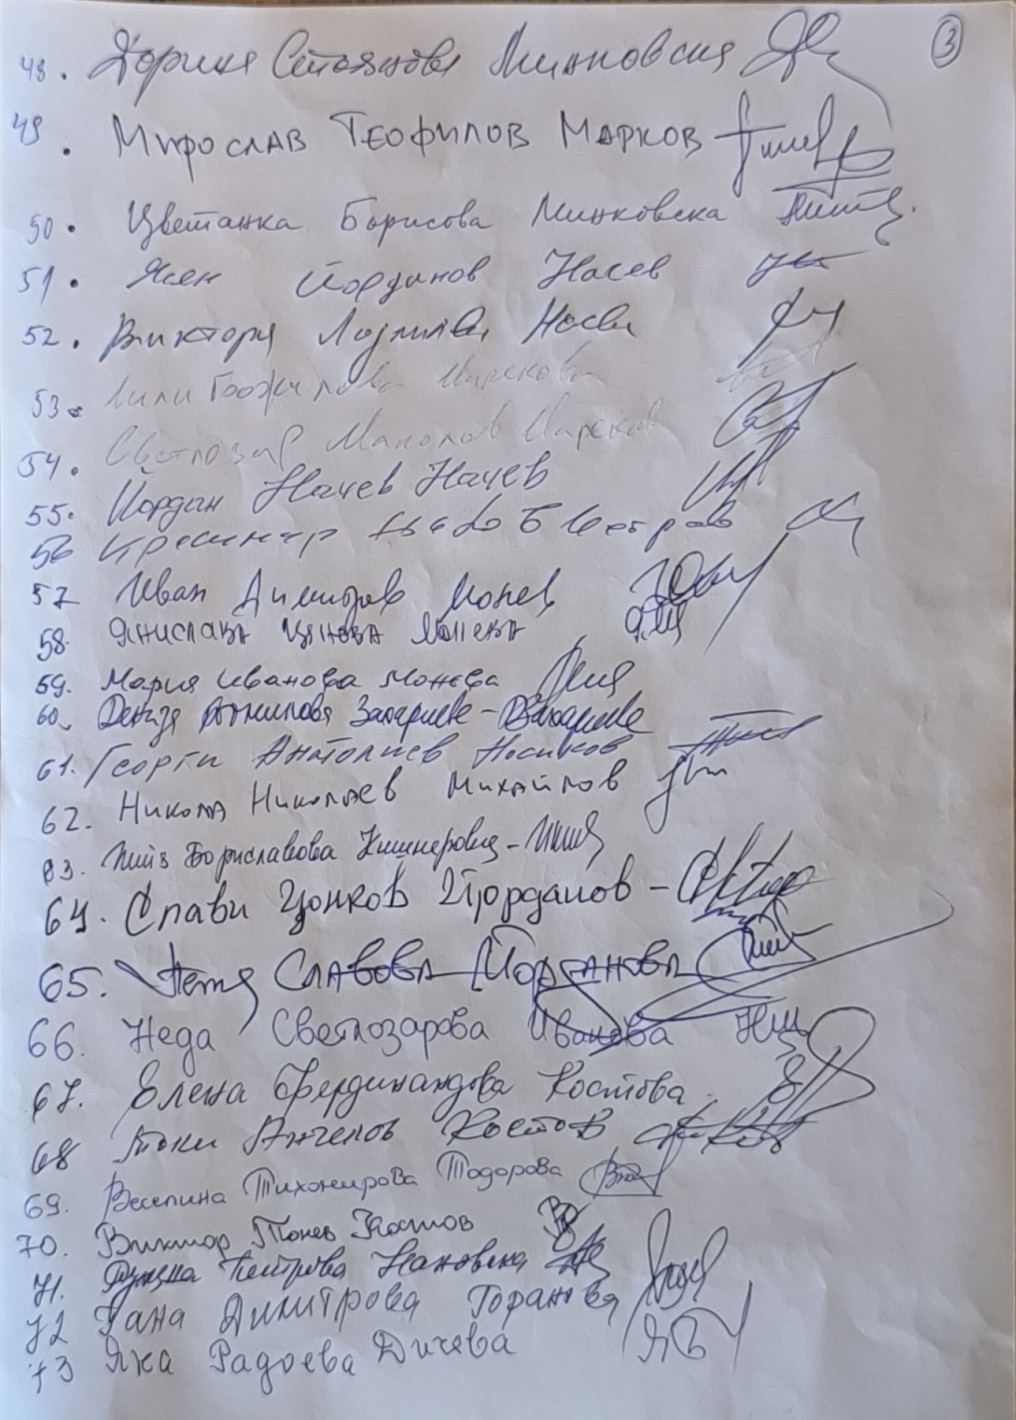 3
48. Дорина Стоянова Минковска
49. Мирослав Теофилов Марков
50. Цветанка Борисова Минковска
51. Ясен Йорданов Насев
52. Виктория
53. Лили
54. Светлозар Манолов
55. Йордан Начев Начев
56 Красимир Петров
57 Иван Димитров Монев
58. Янислава Цанева Монева
59. Мария Иванова Монева
60.
61. Георги Анатолиев Носиков
62. Никола Николаев Михайлов
63. Бориславова
64. Слави Цонков Йорданов -
65. Петя Славова Йорданова
66. Неда Светлозарова Иванова
67. Елена Фердинандова Костова
68 Токи Ангелов Костов
69. Веселина Тихомирова Тодорова
70. Виктор Тонев Костов
71. Петрова
72 Димитрова
73 Яна Радоева Дичева